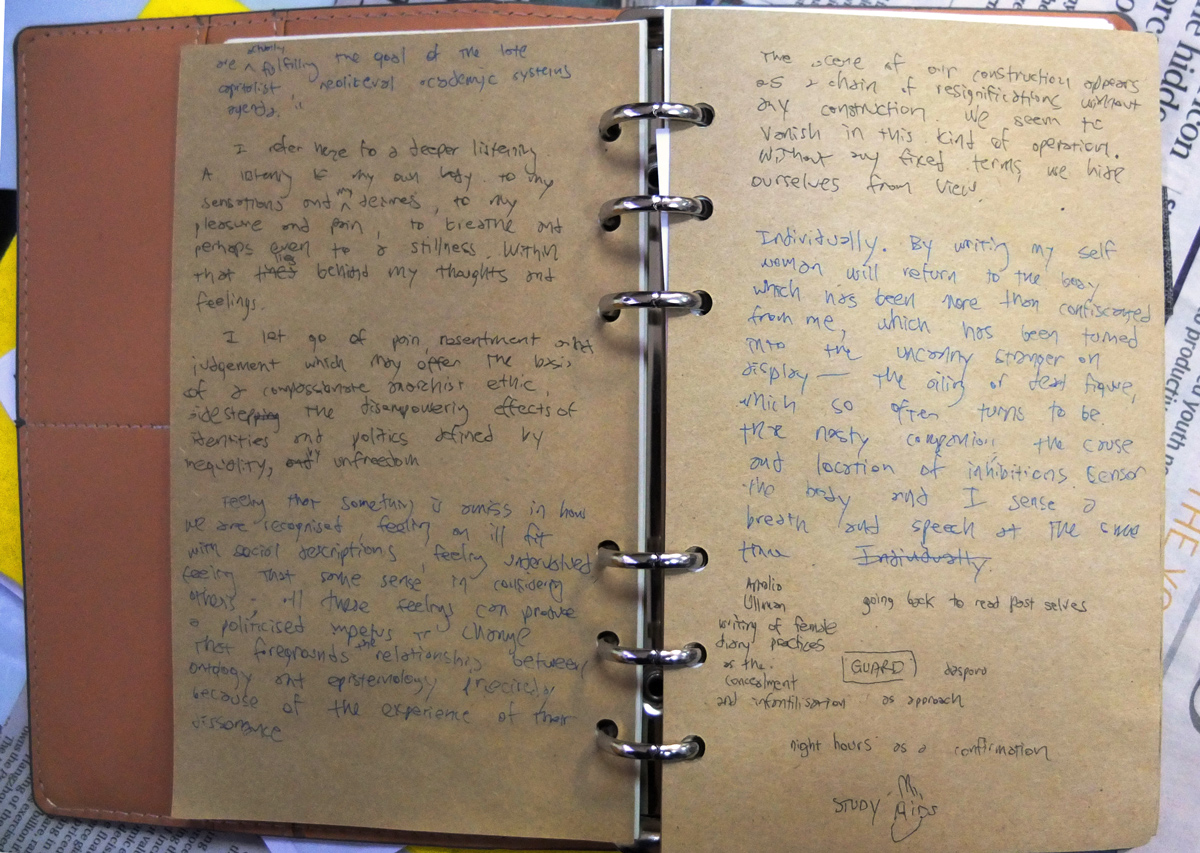 actually
are ^ fulfilling the goal of the late
capitalist neoliberal academic systems
agenda.
I refer here to a deeper listening.
A listening to my own body. to my
sensations and ^my desires, to my
pleasure and pain, to breathe and
perhaps even to a stillness. Within
that lies behind my thoughts and
feelings.
I let go of pain, resentment and
judgement which may offer the basis
of a compassionate anarchist ethic,
sidestepping the disempowering effects of
identities and politics defined by
inequality, unfreedom
Feeling that something is amiss in how
we are recognised feeling an ill fit
with social descriptions, feeling undervalued,
feeling that same sense in considering
others; all these feelings can produce
a politicised impetus to change
that foregrounds the relationship between
ontology and epistemology precisely
because of the experience of their
dissonance
The scene of our construction appears
as a chain of resignifications without
any construction. We seem to
vanish in this kind of operation.
Without any fixed terms, we hide
ourselves from view.
Individually. By writing my self
woman will return to the body
which has been more than confiscated
from me, which has been turned
into the uncanny stranger on
display — the ailing or dead figure,
which so often turns to be
the nasty companion, the cause
and location of inhibitions. Censor
the body and I sense a
breath and speech at the same
time Individually.
Ullman
going back to read past selves
writing of female
diary practices
as the
concealment
GUARD
and infantilisation as approach
night hours as a confirmation
STUDY Aids
hidde
icon
orce
THE
youth